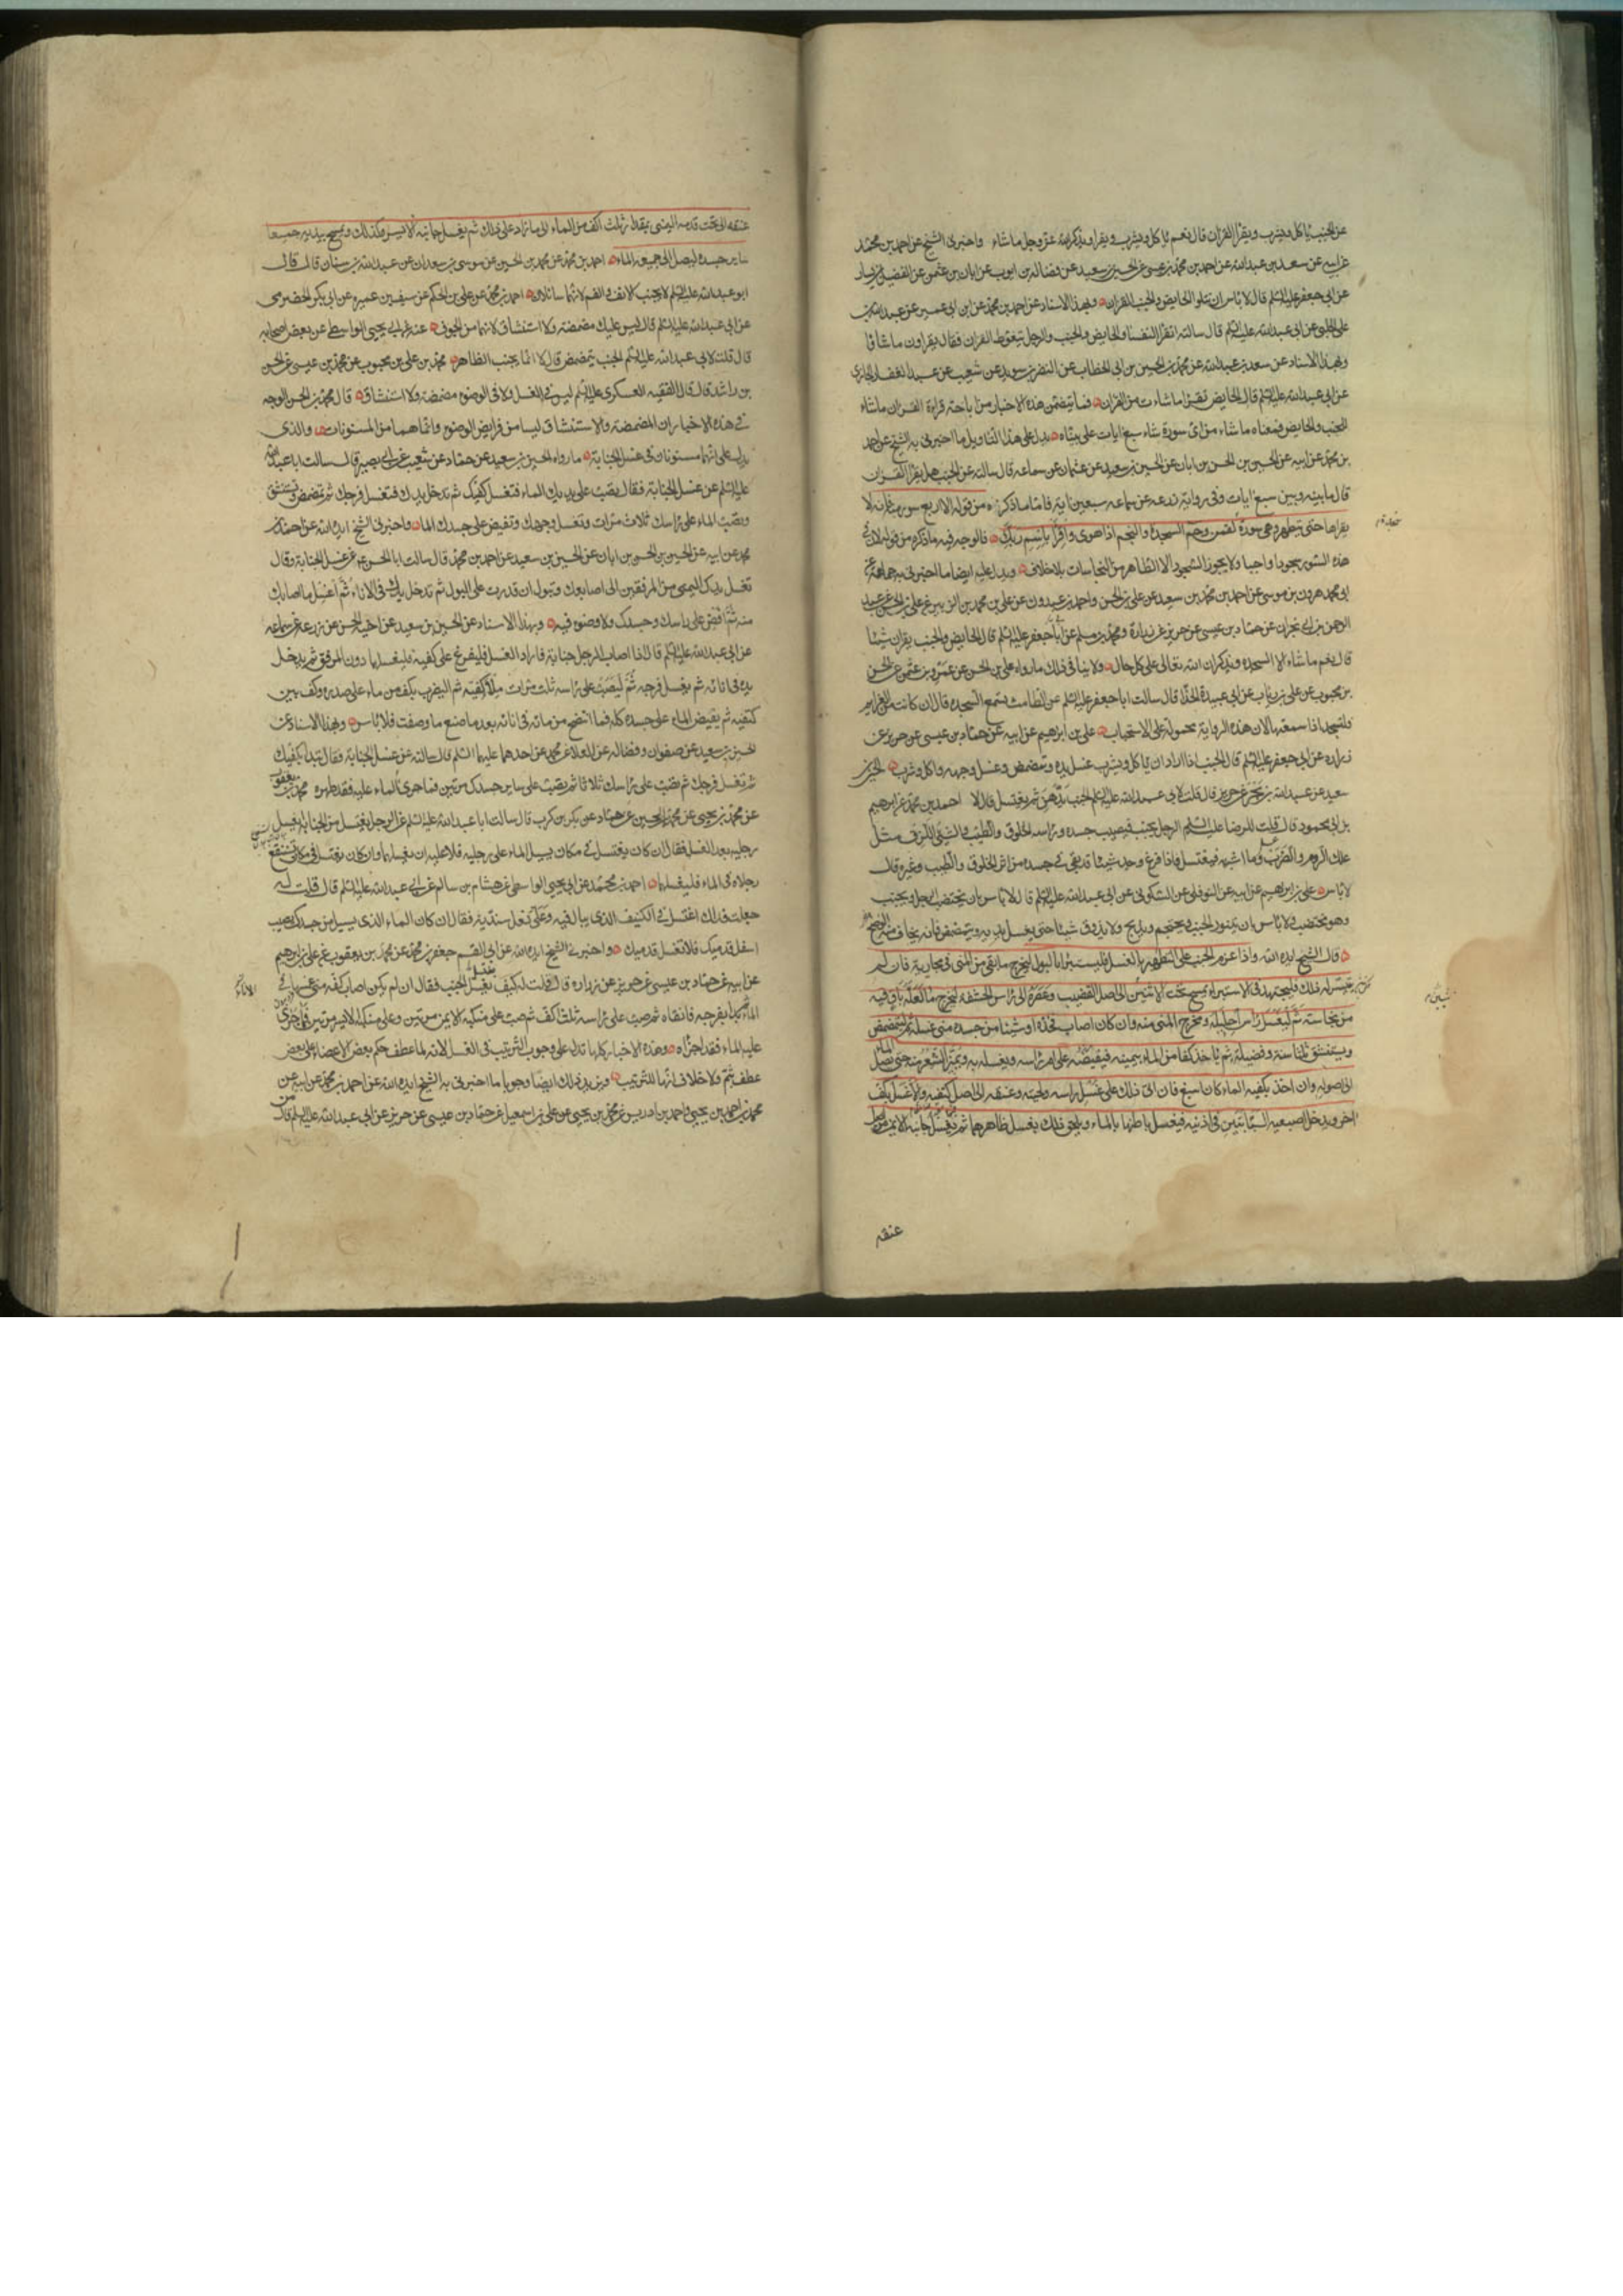 عن الجنب ياكل ويشرب ويقرا القران قال نعم ياكل ويشرب ويقرا ويذكر الله عز وجل ما شاء واخبرنى الشيخ عن احمد بن محمد
عن ابيه عن سعد بن عبد الله عن احمد بن محمد بن عيسى عن الحسين بن سعيد عن فضالة بن ايوب عن ابان بن عثمن عن الفضيل بن يسار
عن ابى جعفر عليه السلم قال لا باس ان تتلو الحايض والجنب القران وبهذا الاسناد عن احمد بن محمد عن ابن ابى عمير عن عبيد الله بن
على الحلبى عن ابى عبد الله عليه السلم قال سالته اتقرا النفساء والحايض والجنب والرجل يتغوط القران فقال يقراون ما شاؤا
وبهذا الاسناد عن سعد بن عبد الله عن محمد بن الحسين بن ابى الخطاب عن النضر بن سويد عن شعيب عن عبد الغفار الجازى
عن ابى عبد الله عليه السلم قال الحايض تقرا ما شاءت من القران فما يتضمن هذه الاخبار من اباحة قراءة القران ما شاء
الجنب والحايض فمعناه ما شاء من اى سورة شاء سبع ايات على بيناه يدل على هذا التاويل ما اخبرنى به الشيخ عن احمد
بن محمد عن ابيه عن الحسين بن الحسن بن ابان عن الحسين بن سعيد عن عثمان عن سماعه قال سالته عن الجنب هل يقرا القران
قال ما بينه وبين سبع ايات وفى رواية زرعه عن سماعه سبعين اية فاما ما ذكره من قوله الا اربع سور منه فانه لا
يقراها حتى يتطهر وهى سورة لقمن وحم السجدة والنجم اذا هوى واقرا باسم ربك فالوجه فيه ما ذكره من قوله لان فى
هذه السور سجودا واجبا ولا يجوز السجود الا لطاهر من النجاسات بلا خلاف ويدل عليه ايضا ما اخبرنى به جماعة عن
ابى محمد هرون بن موسى عن احمد بن محمد بن سعيد عن على بن الحسن واحمد بن عبدون عن على بن محمد بن الزبير عن على بن الحسن عن عبد
الرحمن بن ابى نجران عن حماد بن عيسى عن حريز عن زرارة ومحمد بن مسلم عن ابى جعفر عليه السلم قال الحايض والجنب يقران شيئا
قال نعم ما شاء الا السجدة ويذكران الله تعالى على كل حال ولا ينافى ذلك ما رواه على بن الحسن عن عمرو بن عثمن عن الحسن
بن محبوب عن على بن رئاب عن ابى عبيدة الحذاء قال سالت ابا جعفر عليه السلم عن الطامث تسمع السجده قال ان كانت من العزايم
فلتسجد اذا سمعتها لان هذه الرواية محمولة على الاستحباب على بن ابرهيم عن ابيه عن حماد بن عيسى عن حريز عن
زراره عن ابى جعفر عليه السلم قال الجنب اذا اراد ان ياكل ويشرب غسل يده وتمضمض وغسل وجهه واكل وشرب الحسين بن
سعيد عن عبد الله بن بحر عن حريز قال قلت لابى عبد الله عليه السلم الجنب يدهن ثم يغتسل قال لا احمد بن محمد عن ابرهيم
بن ابى محمود قال قلت للرضا عليه السلم الرجل يجنب فيصيب جسده وراسه الخلوق والطيب والشئ اللزق مثل
علك الروم والطرب وما اشبهه فيغتسل فاذا فرغ وجد شيئا قد بقى فى جسده من اثر الخلوق والطيب وغيره قال
لا باس على بن ابرهيم عن ابيه عن النوفلى عن السكونى عن ابى عبد الله عليه السلم قال لا باس بان يختضب الرجل ويجنب
وهو مختضب ولا باس بان يتنور الجنب ويحتجم ويذبح ولا يذوق شيئا حتى يغسل يديه ويتمضمض فانه يخاف منه الوضح
قال الشيخ ايده الله واذا عزم الجنب على التطهير بالغسل فليستبرئ بالبول ليخرج ما بقى من المنى فى مجاريه فان لم
يتيسر له ذلك فليجتهد فى الاستبراء بمسح تحت الانثيين الى اصل القضيب وعصره الى راس الحشفه ليخرج ما لعله باق فيه
من نجاسته ثم ليغسل راس احليله ومخرج المنى منه وان كان اصاب فخذه او شيئا من جسده منى غسله ثم ليتمضمض
ويستنشق ثلثا سنة وفضيلة ثم ياخذ كفا من الماء بيمينه فيفيضه على ام راسه ويغسله به ويميز الشعر منه حتى يصل الماء
الى اصوله وان اخذ بكفيه الماء كان اسبغ فان اتى ذلك على غسل راسه ولحيته وعنقه الى اصل كتفيه والا غسل بكف
اخر ويدخل اصبعيه السبابتين فى اذنيه فيغسل باطنهما بالماء ويلحق ذلك بغسل ظاهرهما ثم يغسل جانبه الايمن من اصل
عنقه
عنقه الى تحت قدمه اليمنى بمقدار ثلث اكف من الماء الى ما زاد على ذلك ثم يغسل جانبه الايسر كذلك ويمسح بيديه جميعا
ساير جسده ليصل الى جميعه الماء احمد بن محمد عن محمد بن الحسين عن موسى بن سعدان عن عبد الله بن سنان قال قال
ابو عبد الله عليه السلم لا يجنب الانف والفم لانهما سائلان احمد بن محمد عن على بن الحكم عن سيف بن عميره عن ابى بكر الحضرمى
عن ابى عبد الله عليه السلم قال ليس عليك مضمضة ولا استنشاق لانهما من الجوف عنه عن ابى يحيى الواسطى عن بعض اصحابه
قال قلت لابى عبد الله عليه السلم الجنب يتمضمض قال لا انما يجنب الظاهر محمد بن على بن محبوب عن محمد بن عيسى عن الحسن
بن راشد قال قال الفقيه العسكرى عليه السلم ليس فى الغسل ولا فى الوضوء مضمضة ولا استنشاق قال محمد بن الحسن الوجه
فى هذه الاخبار ان المضمضة والاستنشاق ليسا من فرايض الوضوء وانما هما من المسنونات والذى
يدل على انهما مسنونان فى غسل الجنابة ما رواه الحسين بن سعيد عن حماد عن شعيب عن ابى بصير قال سالت ابا عبد الله
عليه السلم عن غسل الجنابة فقال يصب على يديك الماء فتغسل كفيك ثم تدخل يدك فتغسل فرجك ثم تتمضمض وتستنشق
وتصب الماء على راسك ثلاث مرات وتغسل وجهك وتفيض على جسدك الماء واخبرنى الشيخ ايده الله عن احمد بن
محمد عن ابيه عن الحسين بن الحسن بن ابان عن الحسين بن سعيد عن احمد بن محمد قال سالت ابا الحسن عن غسل الجنابة وقال
تغسل يدك اليمنى من المرفقين الى اصابعك وتبول ان قدرت على البول ثم تدخل يدك فى الاناء ثم اغسل ما اصابك
منه ثم افض على راسك وجسدك ولا وضوء فيه وبهذا الاسناد عن الحسين بن سعيد عن اخيه الحسن عن زرعه عن سماعه
عن ابى عبد الله عليه السلم قال اذا اصاب الرجل جنابة فاراد الغسل فليفرغ على كفيه فليغسلهما دون المرفق ثم يدخل
يده فى انائه ثم يغسل فرجه ثم ليصب على راسه ثلث مرات ملأ كفيه ثم ليضرب بكف من ماء على صدره وكف بين
كتفيه ثم يفيض الماء على جسده كله فما انتضح من مائه فى انائه بعد ما صنع ما وصفت فلا باس وبهذا الاسناد عن
الحسين بن سعيد عن صفوان وفضاله عن العلا عن محمد عن احدهما عليهما السلم قال سالته عن غسل الجنابة فقال تبدا بكفيك
ثم تغسل فرجك ثم تصب على راسك ثلاثا ثم تصب على ساير جسدك مرتين فما جرى الماء عليه فقد طهره محمد بن يعقوب
عن محمد بن يحيى عن محمد بن الحسين عن حماد عن بكر بن كرب قال سالت ابا عبد الله عليه السلم عن الرجل يغتسل من الجنابة ايغسل
رجليه بعد الغسل فقال ان كان يغتسل فى مكان يسيل الماء على رجليه فلا عليه ان يغسلهما وان كان يغتسل فى مكان يستنقع
رجلاه فى الماء فليغسلهما احمد بن محمد عن ابى يحيى الواسطى عن هشام بن سالم عن ابى عبد الله عليه السلم قال قلت له
جعلت فداك اغتسل فى الكنيف الذى يبال فيه وعلى نعل سندية فقال ان كان الماء الذى يسيل من جسدك يصيب
اسفل قدميك فلا تغسل قدميك واخبرنى الشيخ ايده الله عن ابى القسم جعفر بن محمد عن محمد بن يعقوب عن على بن ابرهيم
عن ابيه عن حماد بن عيسى عن حريز عن زراره قال قلت له كيف يغتسل الجنب فقال ان لم يكن اصاب كفه منى غمسها فى
الماء ثم بدا بفرجه فانقاه ثم صب على راسه ثلث اكف ثم صب على منكبه الايمن مرتين وعلى منكبه الايسر مرتين فما جرى
عليه الماء فقد اجزاه وهذه الاخبار كلها تدل على وجوب الترتيب فى الغسل لانه لما عطف حكم بعض الاعضاء على بعض
عطف بثم ولا خلاف انها للترتيب ويزيد ذلك ايضا وجوبا ما اخبرنى به الشيخ ايده الله عن احمد بن محمد عن ابيه عن
محمد بن احمد بن يحيى واحمد بن ادريس عن محمد بن يحيى عن على بن اسمعيل عن حماد بن عيسى عن حريز عن ابى عبد الله عليه السلم قال من